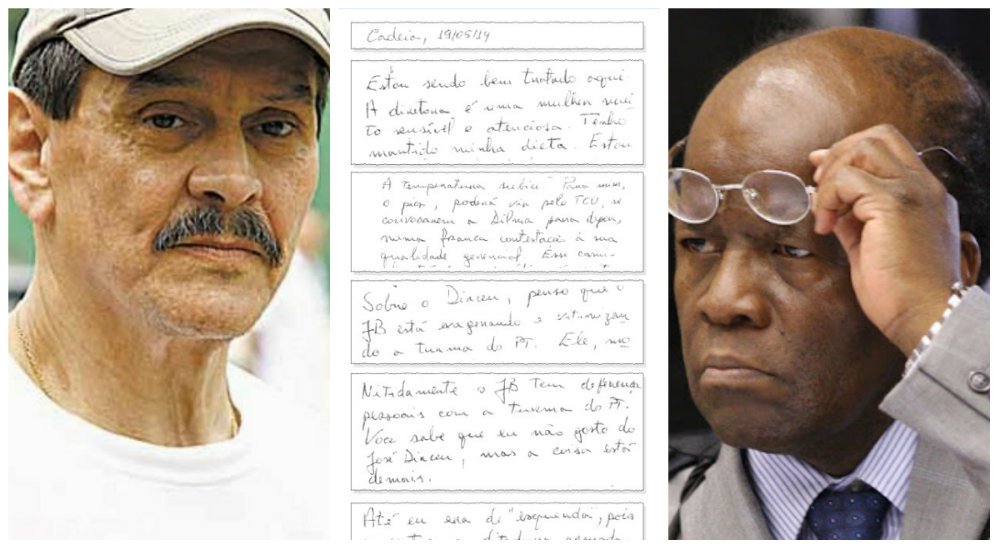 Cadeia, 19/05/14
Estou sendo bem tratado aqui
A diretora é uma mulher mui
to sensível e atenciosa. Tenho
mantido minha dieta. Estou
A temperatura subiu. Para mim,
o pior, poderá vir pelo TCU, se
convocarem a Dilma para depor,
numa franca contestação à sua
qualidade gerencial. Esse cami-
Sobre o Dirceu, penso que o
JB está exagerando e vitimizan
do a turma do PT. Ele, no
Nitidamente o JB tem diferenças
pessoais com a turma do PT.
Você sabe que eu não gosto do
José Dirceu, mas a coisa está
demais.
Até eu era de "esquerda", pois